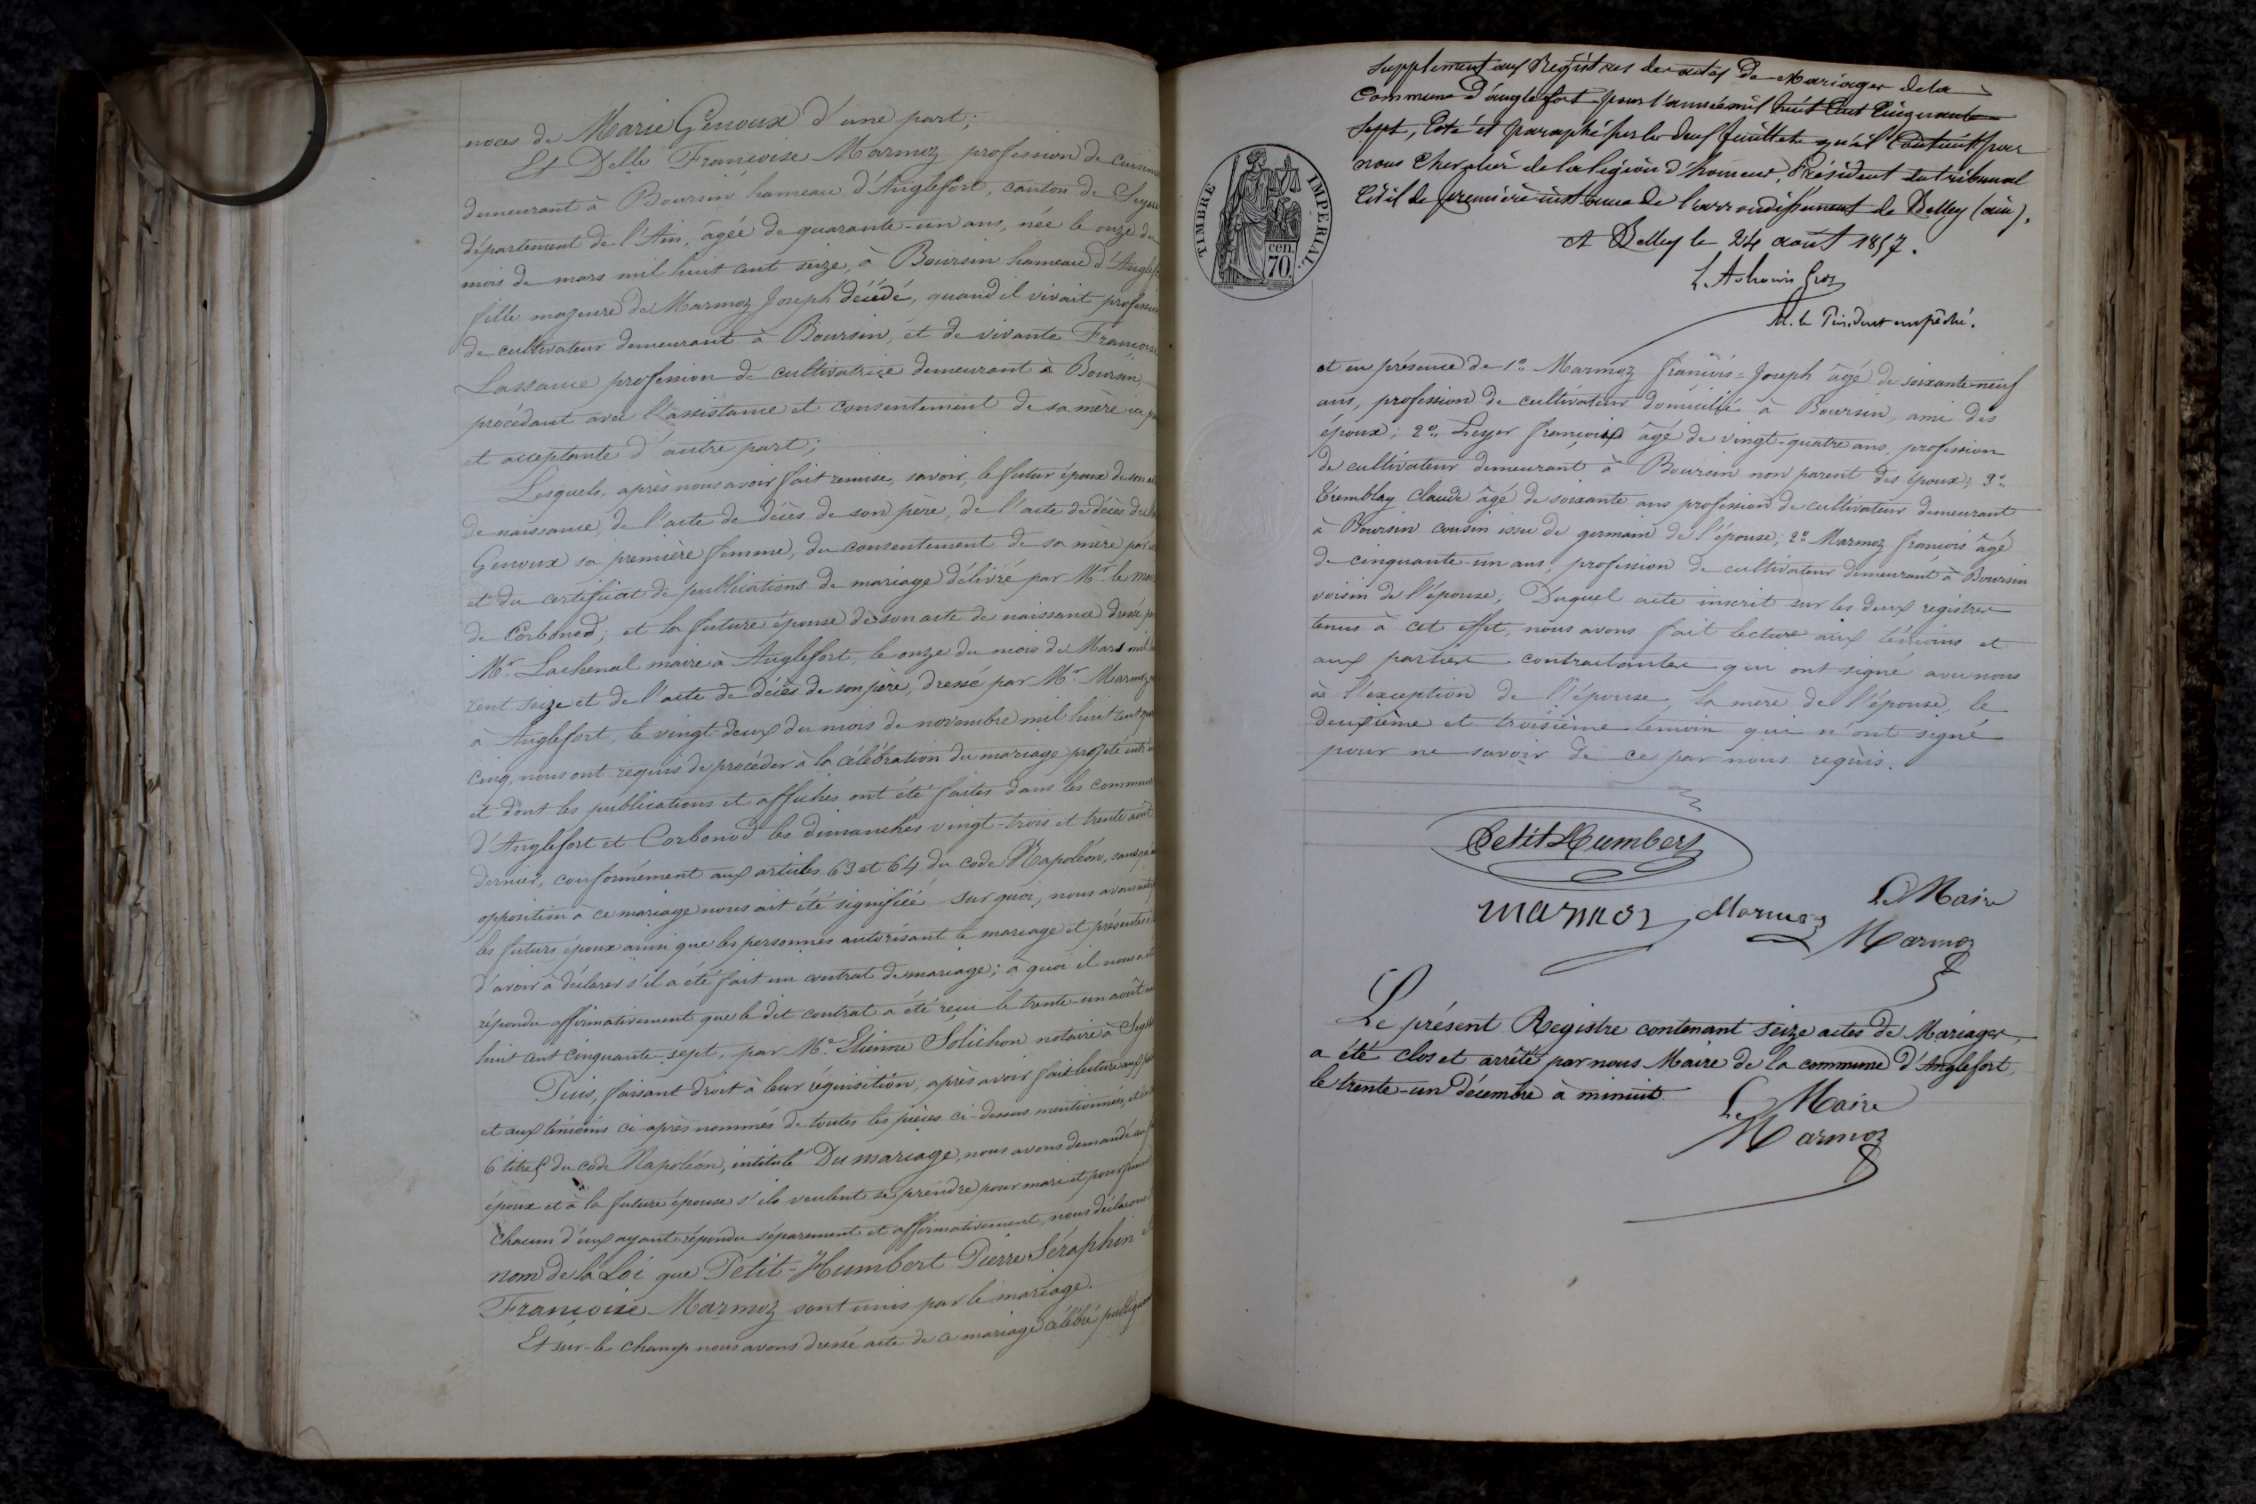 noces de Marie Genoux d'une part;
Et Delle Françoise Marmoz profession de
demeurant à Boursin hameau d'Anglefort, canton de
département de l'Ain, âgée de quarante-un ans, née le onze du
mois de mars mil huit cent seize, à Boursin hameau
fille majeure de Marmoz Joseph décédé, quand il vivait
de cultivateur demeurant à Boursin, et de vivante Françoise
profession de cultivatrice demeurant à Boursin,
procédant avec l'assistance et consentement de sa mère ici
et acceptante d'autre part;
Lesquels, après nous avoir fait remise, savoir, le futur époux de son
de naissance, de l'acte de décès de son père, de l'acte de décès de
Genoux sa première femme, du consentement de sa mère par
et du certificat de publications de mariage délivré par Mr le
de Corbonod; et la future épouse de son acte de naissance dressé
Mr Lachenal maire à Anglefort, le onze du mois de Mars mil
cent seize et de l'acte de décès de son père, dressé par Mr Marmoz
à Anglefort, le vingt-deux du mois de novembre mil huit cent
cinq, nous ont requis de procéder à la célébration du mariage projeté
et dont les publications et affiches ont été faites dans les
d'Anglefort et Corbonod les dimanches vingt-trois et trente août
dernier, conformément aux articles 63 et 64 du code Napoléon,
opposition à ce mariage nous ait été signifiée. Sur quoi, nous avons
les futurs époux ainsi que les personnes autorisant le mariage et
d'avoir à déclarer s'il a été fait un contrat de mariage; à quoi il nous
répondu affirmativement que le dit contrat a été reçu le trente-un août
huit cent cinquante-sept, par Me Etienne Solichon notaire à
Puis, faisant droit à leur réquisition, après avoir fait lecture aux
et aux témoins ci-après nommés de toutes les pièces ci-dessus mentionnées,
6 titre 5 du code Napoléon, intitulé Du mariage, nous avons demandé
époux et à la future épouse s'ils veulent se prendre pour mari et pour
Chacun d'eux ayant répondu séparement et affirmativement, nous déclarons
nom de la Loi que Petit-Humbert Pierre Séraphin
Françoise Marmoz sont unis par le mariage.
Et sur-le champ nous avons dressé acte de ce mariage célébré
Supplement aux Registres des actes de Mariages de la
Commune d'anglefort pour l'année mil huit Cent Cinquante
Sept, Coté et paraphé sur les deux feuillets qu'il Contient par
nous Chevalier de la légion d'honneur, Président du tribunal
Civil de première instance de l'arrondissement de Belley (ain).
A Belley le 24 août 1857.
M. le Président empêché.
TIMBRE IMPÉRIAL
70 cen.
et en présence de 1o Marmoz françois-Joseph âgé de soixante-neuf
ans, profession de cultivateur domicilié à Boursin, ami des
époux; 2o françois âgé de vingt-quatre ans profession
de cultivateur demeurant à Boursin non parent des époux; 3o
Tremblay claude âgé de soixante ans profession de cultivateur demeurant
à Boursin cousin issu de germain de l'épouse; 2o Marmoz françois âgé
de cinquante-un ans, profession de cultivateur demeurant à Boursin
voisin de l'épouse, Duquel acte inscrit sur les deux régistres
tenus à cet effet, nous avons fait lecture aux témoins et
aux parties contractantes qui ont signé avec nous
à l'exception de l'épouse, la mère de l'épouse, le
deuxième et troisième temoin qui n'ont signé
pour ne savoir de ce par nous requis.
Petit Humbert
marmoz Marmoz
Le Maire
Marmoz
Le présent Registre contenant seize actes de Mariages,
a été clos et arrêté par nous Maire de la commune d'Anglefort,
le trente-un décembre à minuit.
Le Maire
Marmoz